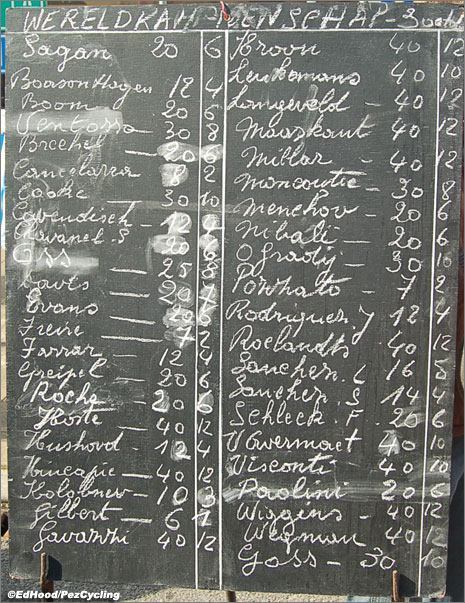 WERELDKAMPIENSCHAP - 3
Sagan 20 6
Boason Hagen 12 4
Boom 20 6
Ventosa - 30 8
Brechel - 20 6
Cancelarra 8 2
Cooke - 30 10
Cavendisch - 12 4
Chavanel. S 20 6
Goss 25 8
Davis 20 7
Evans 20 6
Freire 7 2
Farrar 12 4
Greipel - 20 6
Roche 20 6
Horte - 40 12
Hushovd - 12 4
Hincapie - 40 12
Kolobnev - 10 3
Gilbert - 6 1
Gavazzi 40 12
Kroon 40 12
Leukemans 40 10
Langeveld - 40 12
Maaskant 40 12
Millar - 40 12
Moncoutie - 30 8
Menchov - 20 6
Nibali - 20 6
O grady - 30 10
Powhato - 7 2
Rodriguez. J 12 4
Roelandts 40 12
Sanchez. L 16 5
Sanchez. S 14 4
Schleck. F. 20 6
V Avermaet 40 10
Visconti - 40 10
Paolini 20 6
Wiggins - 40 12
Wegman 40 12
Goss - 30 10
©EdHood/PezCycling